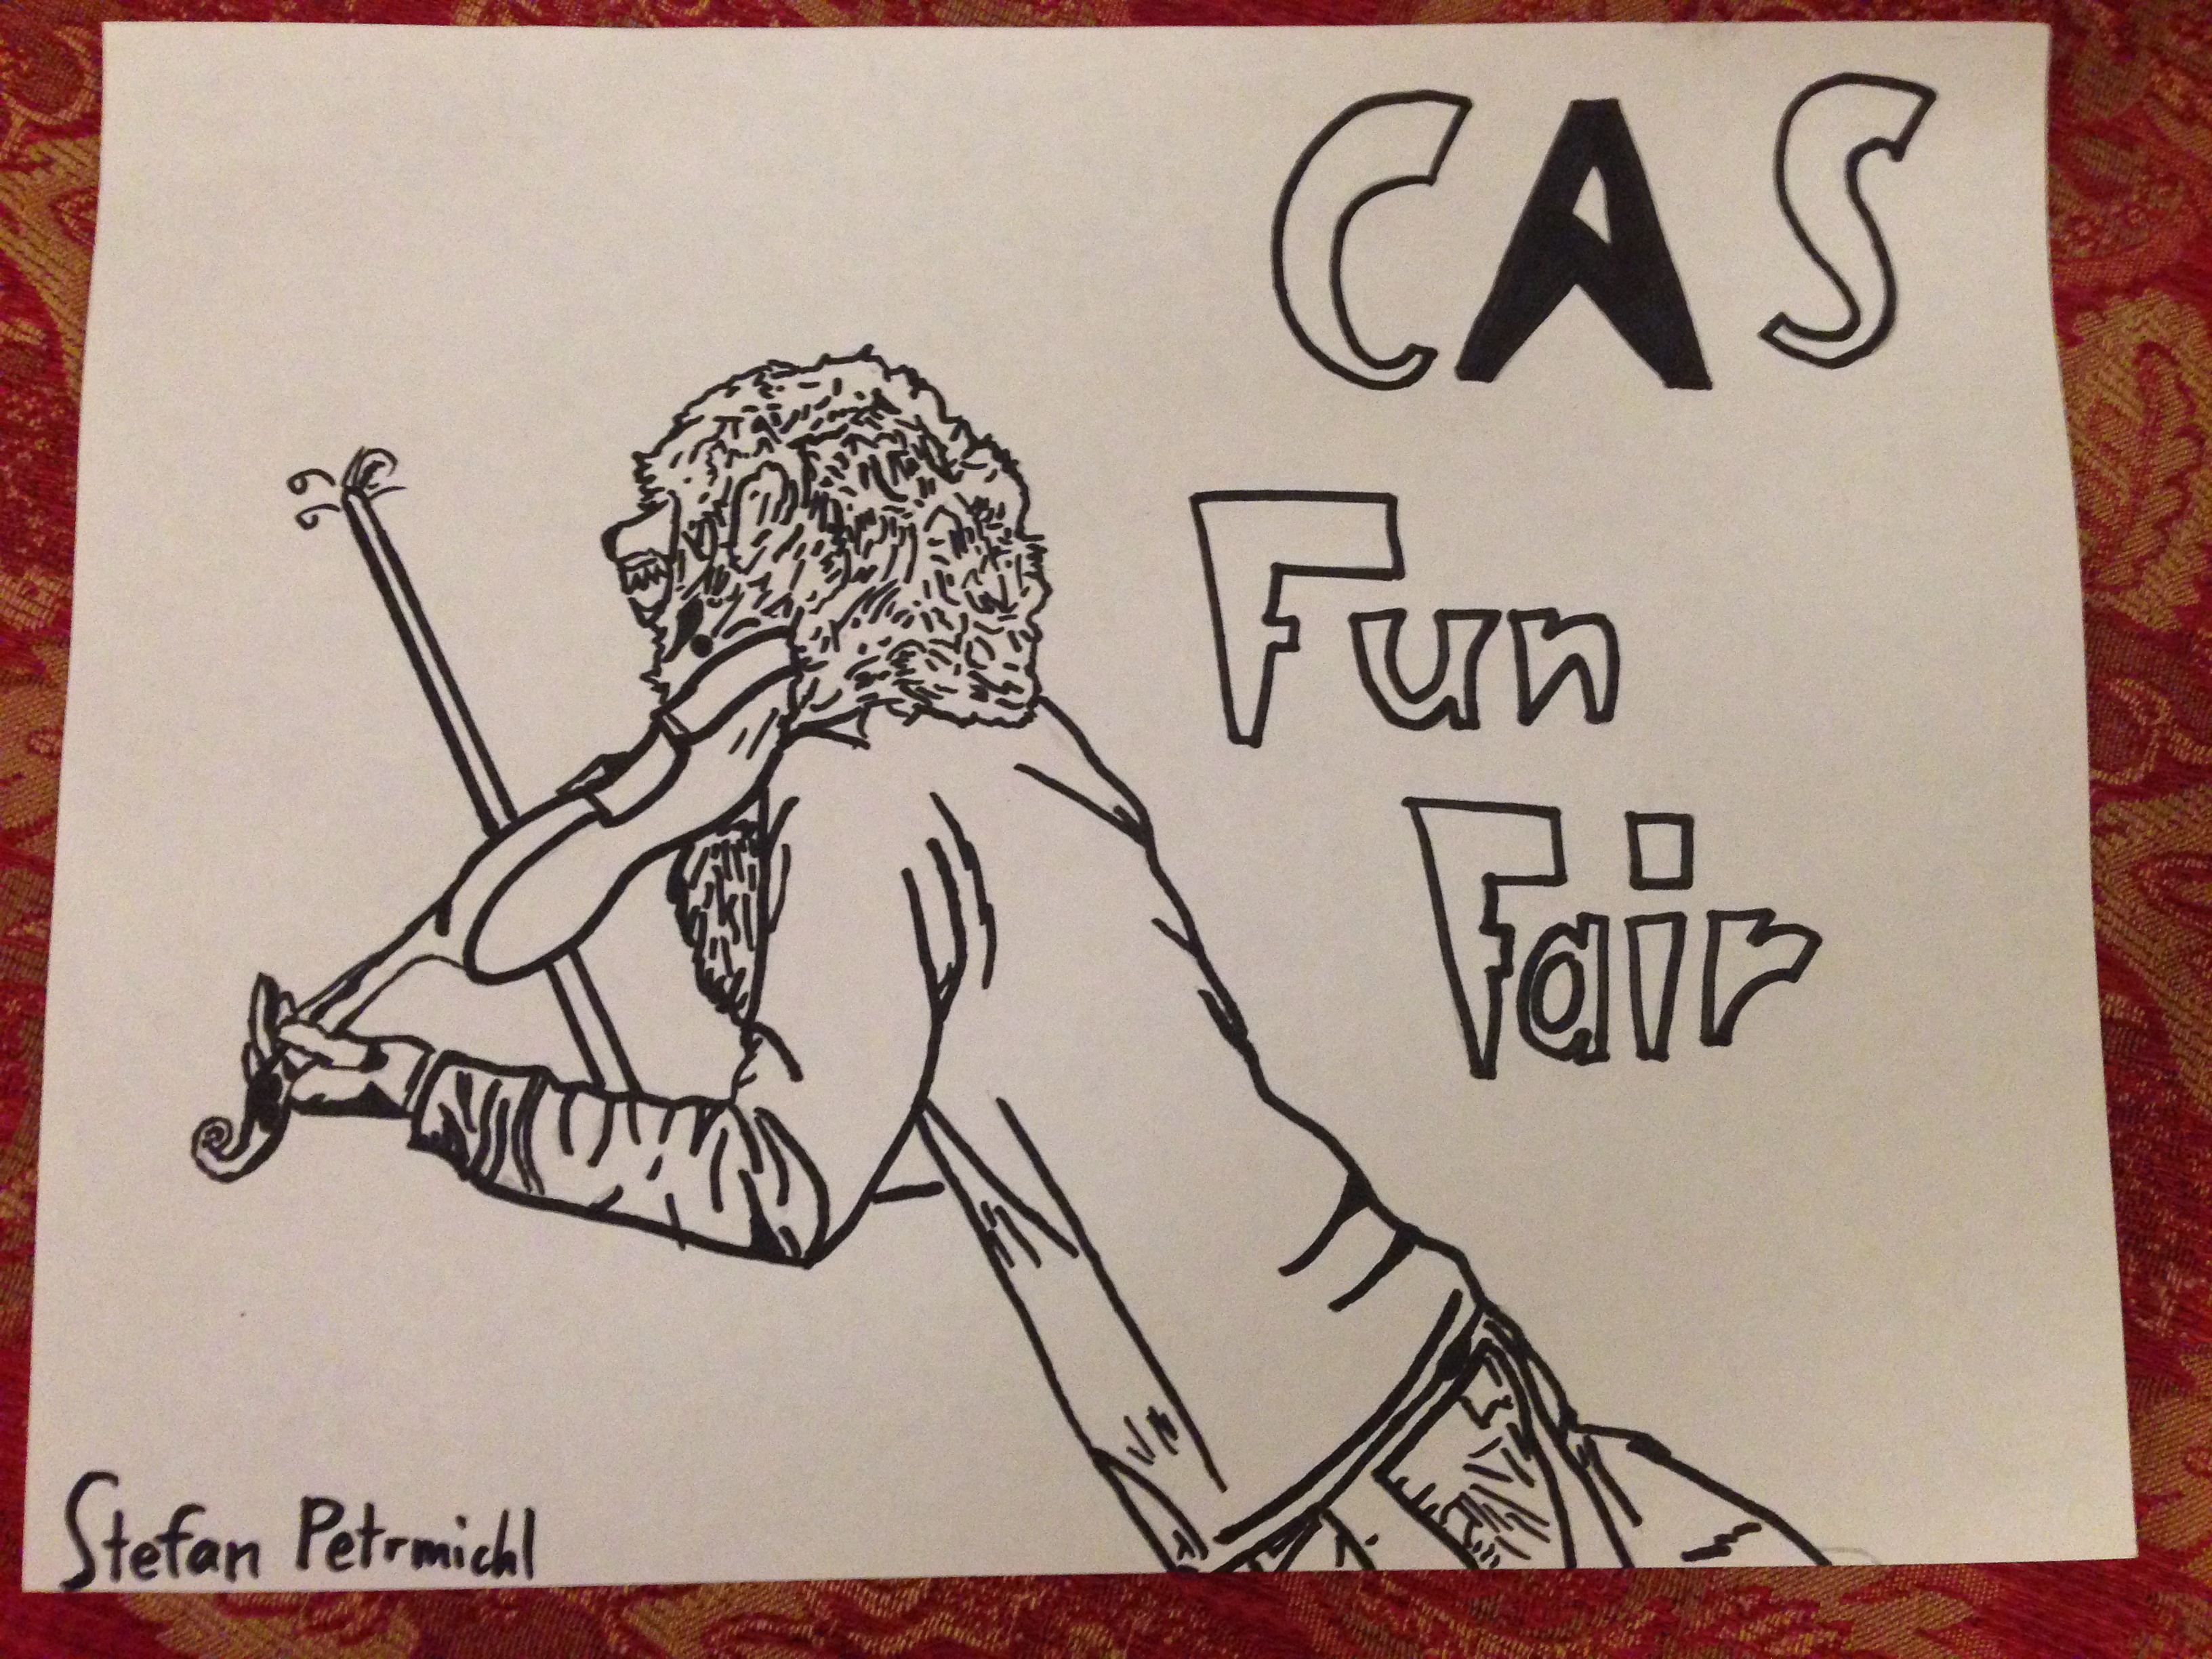 CAS
Fun
Fair
Stefan Petrmichl